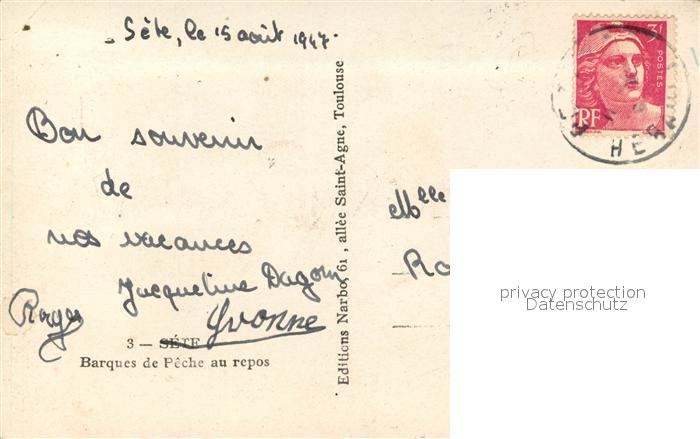 Sète, le 15 août 1947.
Bon souvenir
de
nos vacances
Jacqueline
Roger
Yvonne
3 — SÉTE
Barques de Pêche au repos
Editions Narbo, 61, allée Saint-Agne, Toulouse
3f
POSTES
RF
HÉRA
Mlle
Ro
privacy protection
Datenschutz